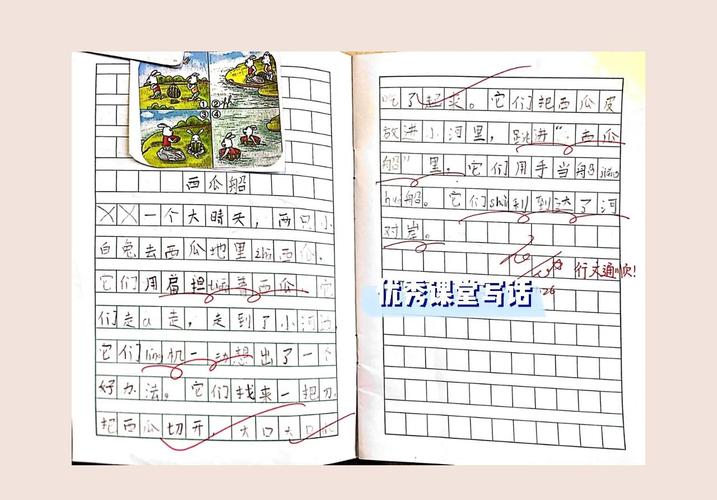 ①②
③④
西瓜船
一个大晴天，两只小
白兔去西瓜地里zhāi西瓜。
它们用扁担 着西瓜，它
们走a走，走到了小河边
它们líng机一动想出了一个
好办法。它们找来一把刀。
把西瓜切开，大口大口
吃了起来。它们把西瓜皮
放进小河里，跳进“西瓜
船”里，它们用手当船jiǎng
huá船。它们shùn利到达了河
对岸。
行文通顺！
优秀课堂写话